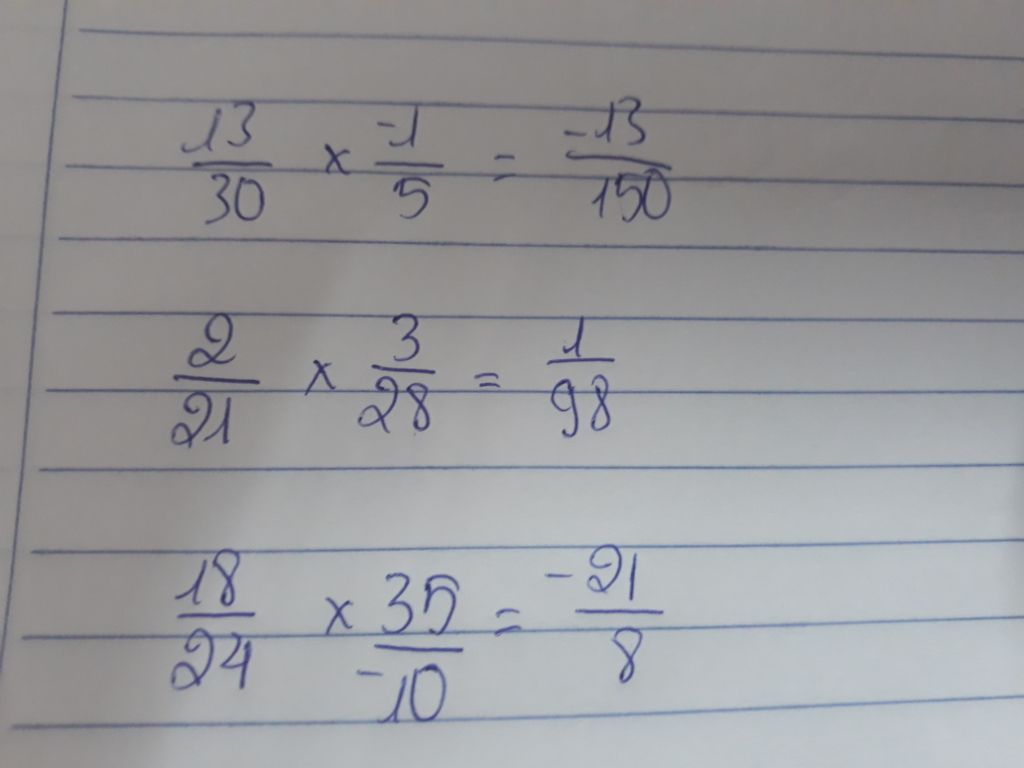 13/30 × -1/5 = -13/150
2/21 × 3/28 = 1/98
18/24 × 35/-10 = -21/8